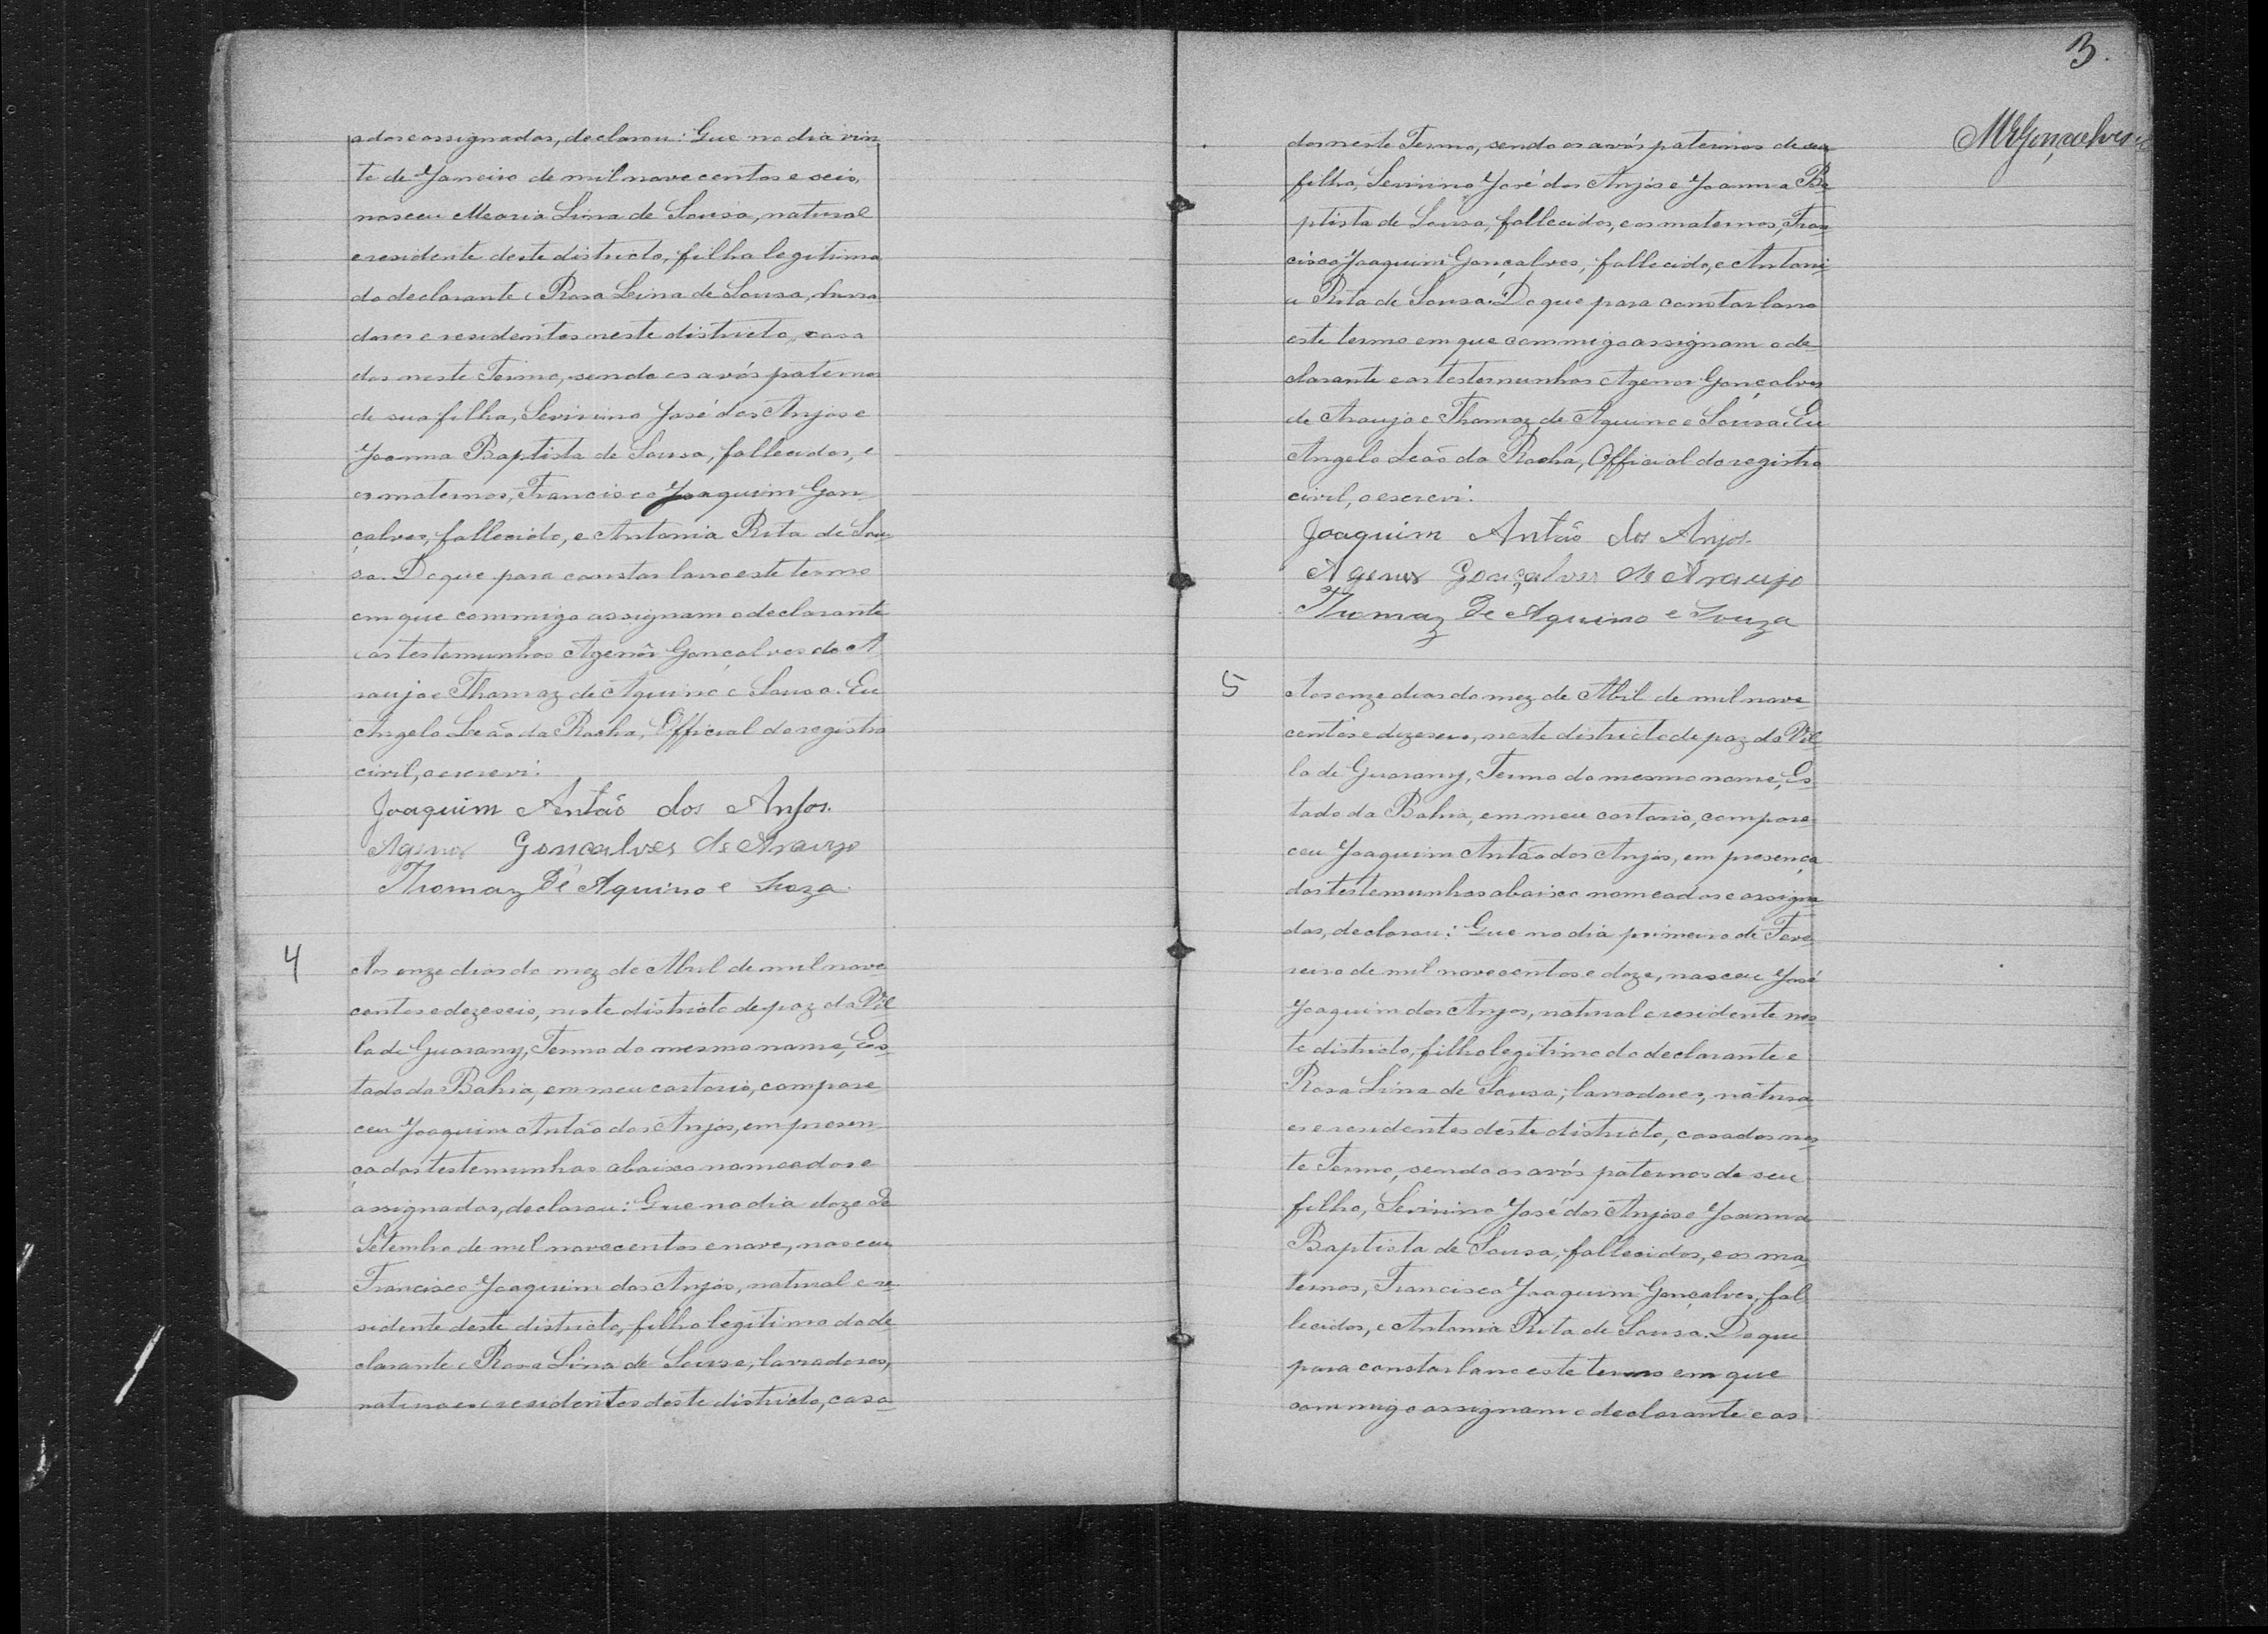 ados e assignados, declarou: Que no dia vin
te de Janeiro de mil nove centos e seis,
nasceu Maria Lina de Sousa, natural
e residente deste districto, filha legitima
do declarante e Rosa Lina de Sousa, lavra
dores e residentes neste districto, casa
dos neste Termo, sendo os avós paternos
de sua filha, Sevirino José dos Anjos e
Joanna Baptista de Sousa, fallecidos, e
os maternos, Francisco Joaquim Gon-
çalves, fallecido, e Antonia Rita de Sou-
sa. Do que para constar lavro este termo
em que commigo assignam o declarante
e as testemunhas Agenôr Gonçalves de A
raujo e Thomaz de Aquino e Sousa. Eu
Angelo Leão da Rocha, Official do registro
civil, o escrevi.
Joaquim Antão dos Anjos.
Agenor Gonçalves de Araujo
Thomaz De Aquino e Souza.
4
Aos onze dias do mez de Abril de mil nove
centos e dezeseis, neste districto de paz da Vil
la de Guarany, Termo do mesmo nome, Es-
tado da Bahia, em meu cartorio, compare
ceu Joaquim Antão dos Anjos, em presen-
ça das testemunhas abaixo nomeados e
assignados, declarou: Que no dia doze de
Setembro de mil novecentos e nove, nasceu
Francisco Joaquim dos Anjos, natural e re-
sidente deste districto, filho legitimo do de
clarante e Rosa Lina de Sousa, lavradores,
naturaes e residentes deste districto, casa-
3.
MGonçalves
dos neste Termo, sendo os avós paternos de seu
filho, Sevirino José dos Anjos e Joanna Ba-
ptista de Sousa, fallecidos, e os maternos, Fran-
cisco Joaquim Gonçalves, fallecido, e Antoni-
a Rita de Sousa. Do que para constar lavro
este termo em que commigo assignam o de-
clarante e as testemunhas Agenor Gonçalves
de Araujo e Thomaz de Aquino e Sousa. Eu
Angelo Leão da Rocha, Official do registro
civil, o escrevi.
Joaquim Antão dos Anjos.
Agenor Gonçalves de Araujo
Thomaz De Aquino e Souza
5
Aos onze dias do mez de Abril de mil nove-
centos e dezeseis, neste districto de paz da Vil-
la de Guarany, Termo do mesmo nome, Es-
tado da Bahia, em meu cartorio, compare-
ceu Joaquim Antão dos Anjos, em presença
das testemunhas abaixo nomeados e assigna
dos, declarou: Que no dia primeiro de Feve-
reiro de mil novecentos e doze, nasceu José
Joaquim dos Anjos, natural e residente nes-
te districto, filho legitimo do declarante e
Rosa Lina de Sousa, lavradores, natura-
es e residentes deste districto, casados nes-
te Termo, sendo os avós paternos de seu
filho, Sevirino José dos Anjos e Joanna
Baptista de Sousa, fallecidos, e os ma-
ternos, Francisco Joaquim Gonçalves, fal-
lecidos, e Antonia Rita de Sousa. Do que
para constar lavro este termo em que
commigo assignam o declarante e as